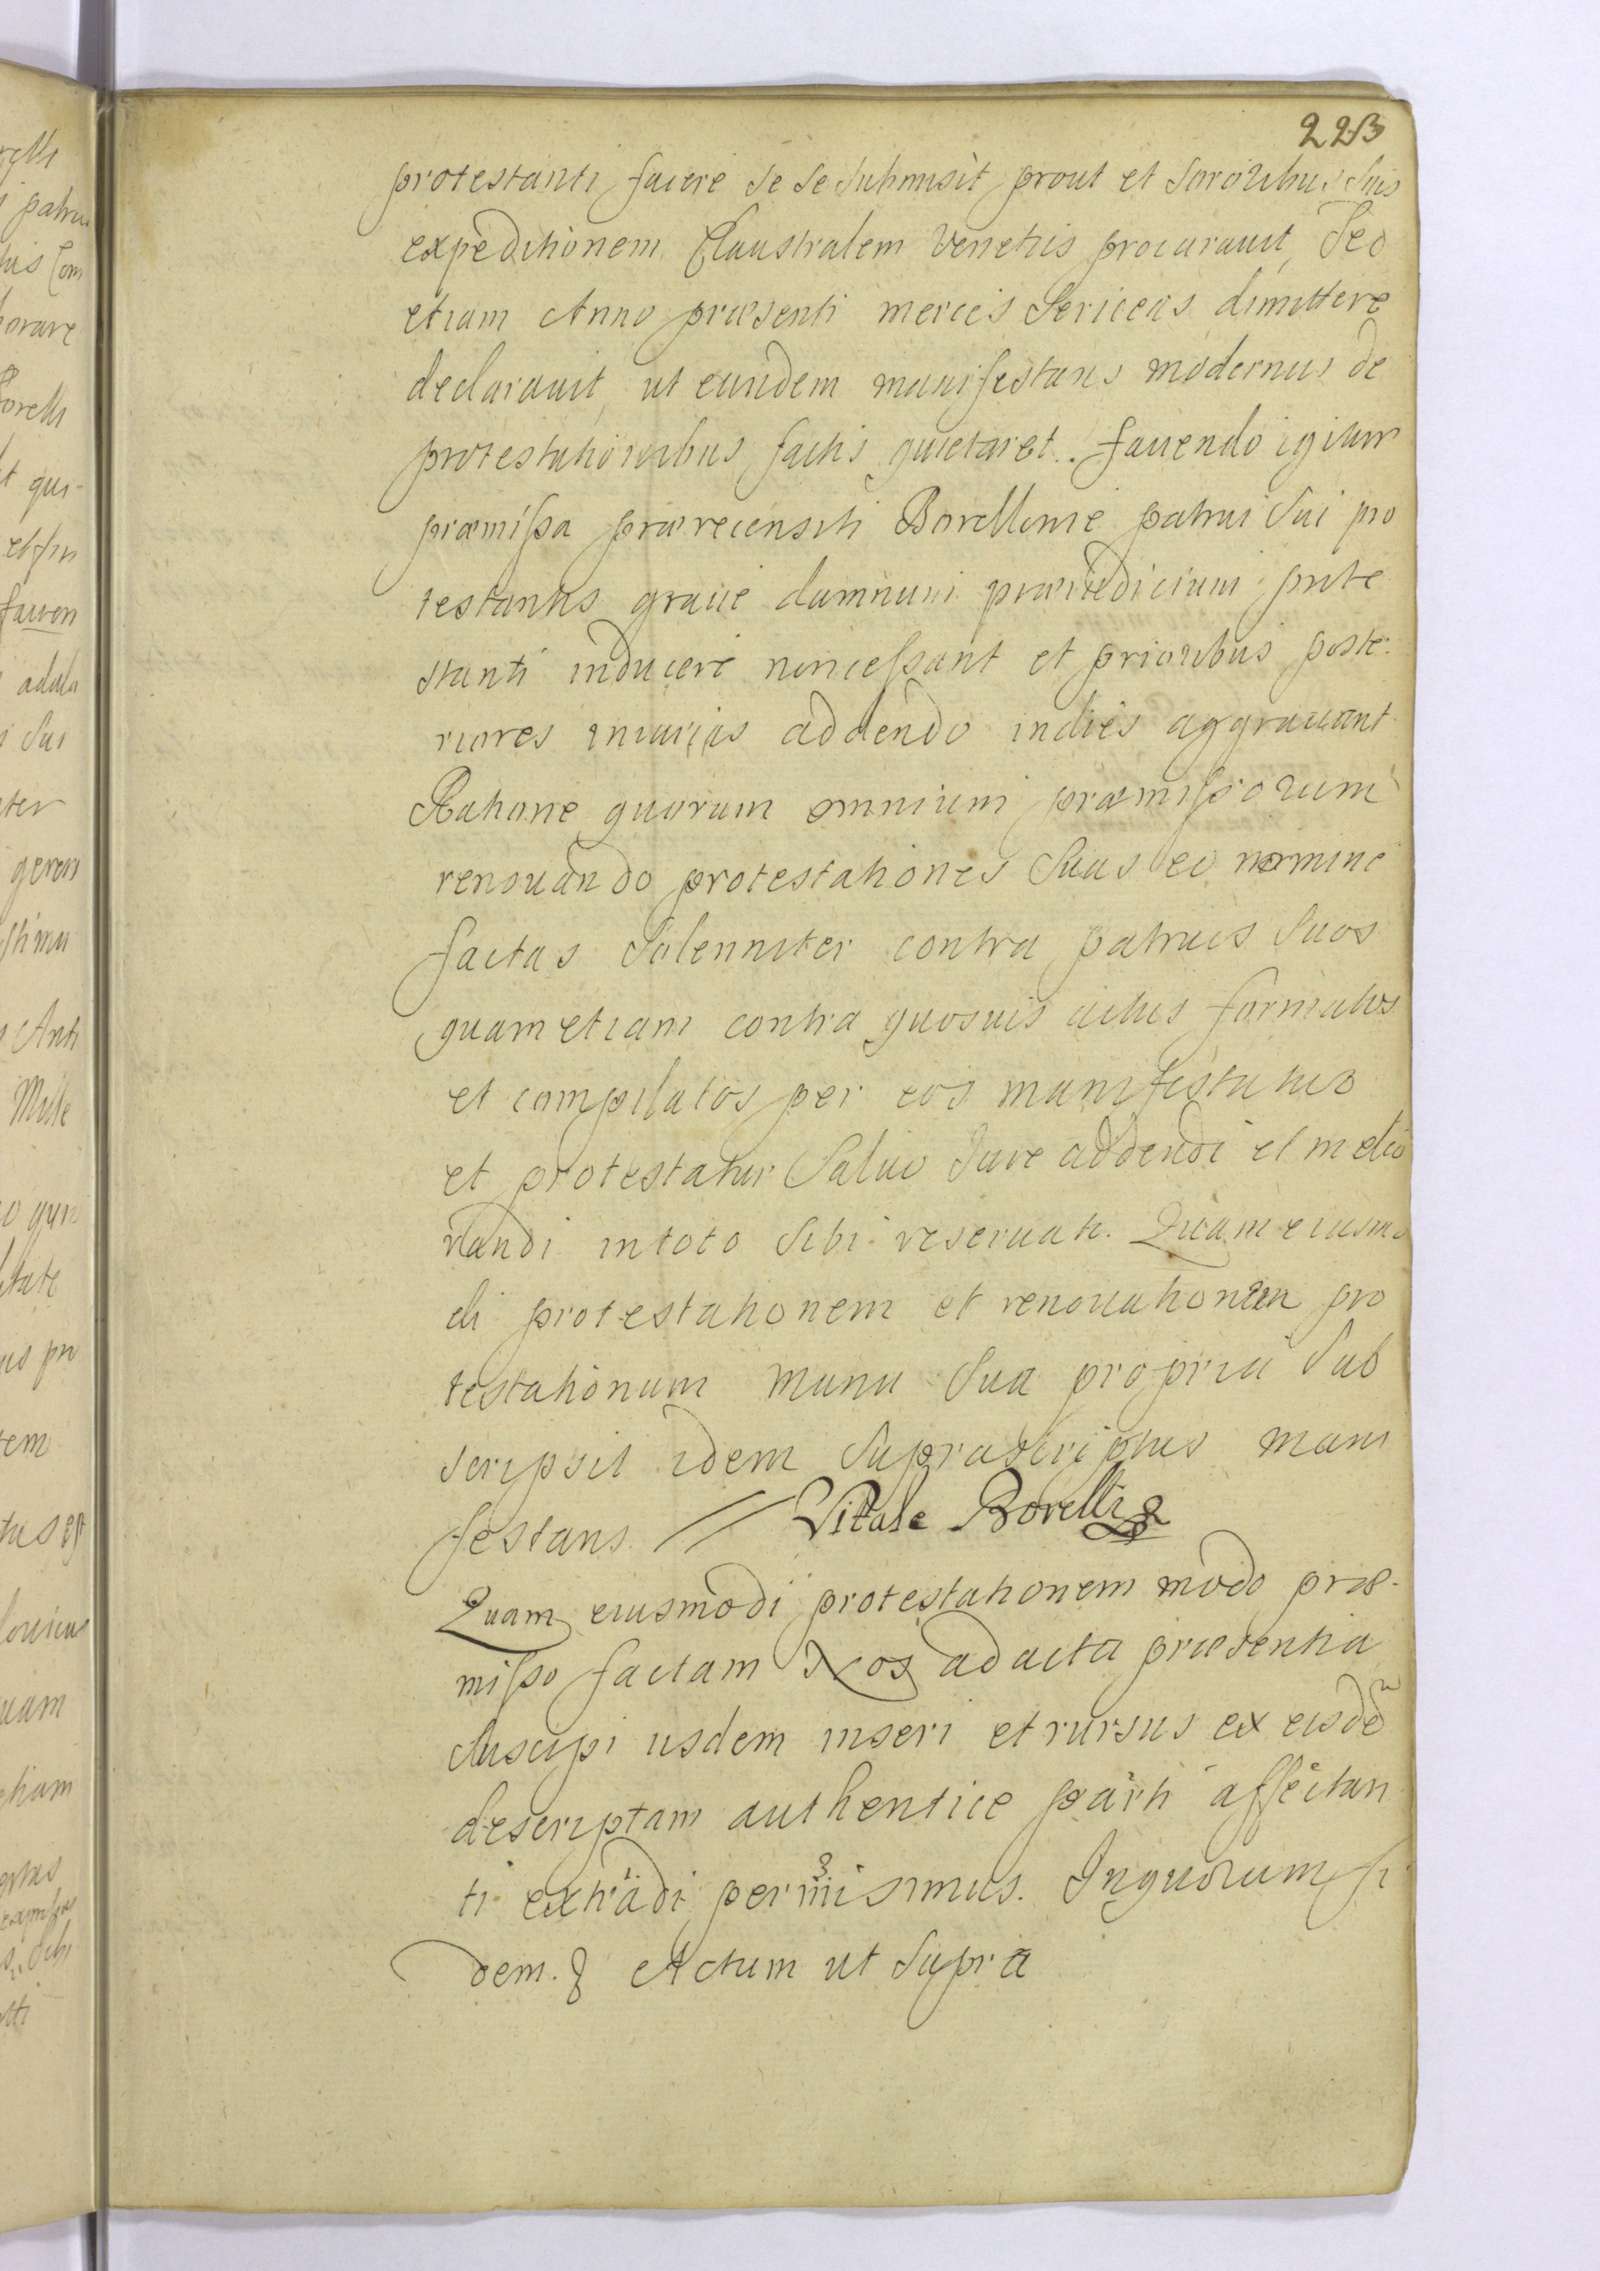 223
protestanti facere se se submisit prout et sororibus suis
expeditionem Claustralem Venetiis procurauit, Sed
etiam Anno præsenti merces Sericeas dimittere
declarauit, ut eundem manifestans modernus de
protestationibus factis quietaret. fauendo igitur
præmissa prærecensiti Borellonie patrui sui pro
testantis graue damnum præiudicium prote
stanti inducere non cessant et prioribus poste
riores iniurias addendo indies aggrauant
Ratione quorum omnium præmissorum
renouando protestationes suas eo nomine
factas Solenniter contra patruos suos
quam etiam contra quosuis actus formatos
et compilatos per eos manifestatur
et protestatur Saluo Iure addendi et melio
randi in toto sibi reseruati. Quam eiusmo
di protestationem et renouationem pro
testationum manu sua propria sub
scripsit idem suprascriptus mani
festans // Vitale Borelli
Quam eiusmodi protestationem modo præ
misso factam Nos ad acta præsentia
suscipi iisdem inseri et rursus ex eisdẽ
descriptam authentice parti affectan
ti extradi permisimus. In quorum fi
dem. Actum ut supra